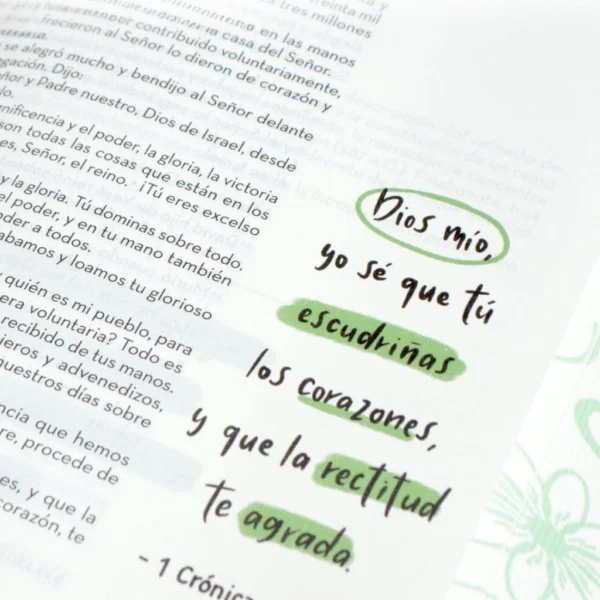 treinta mil
tres millones
en las manos
contribuido voluntariamente, la casa del Señor.
ofrecieron al Señor lo dieron de corazón y
se alegró mucho y bendijo al Señor delante
Dijo:
Señor y Padre nuestro, Dios de Israel, desde
magnificencia y el poder, la gloria, la victoria
son todas las cosas que están en los
es, Señor, el reino. ¡Tú eres excelso
y la gloria. Tú dominas sobre todo.
el poder, y en tu mano también
a todos.
alabamos y loamos tu glorioso
quién es mi pueblo, para
voluntaria? Todo es
recibido de tus manos.
y advenedizos,
nuestros días sobre
que hemos
procede de
es, y que la
corazón, te
Dios mío,
yo sé que tú
escudriñas
los corazones,
y que la rectitud
te agrada.
- 1 Crónic